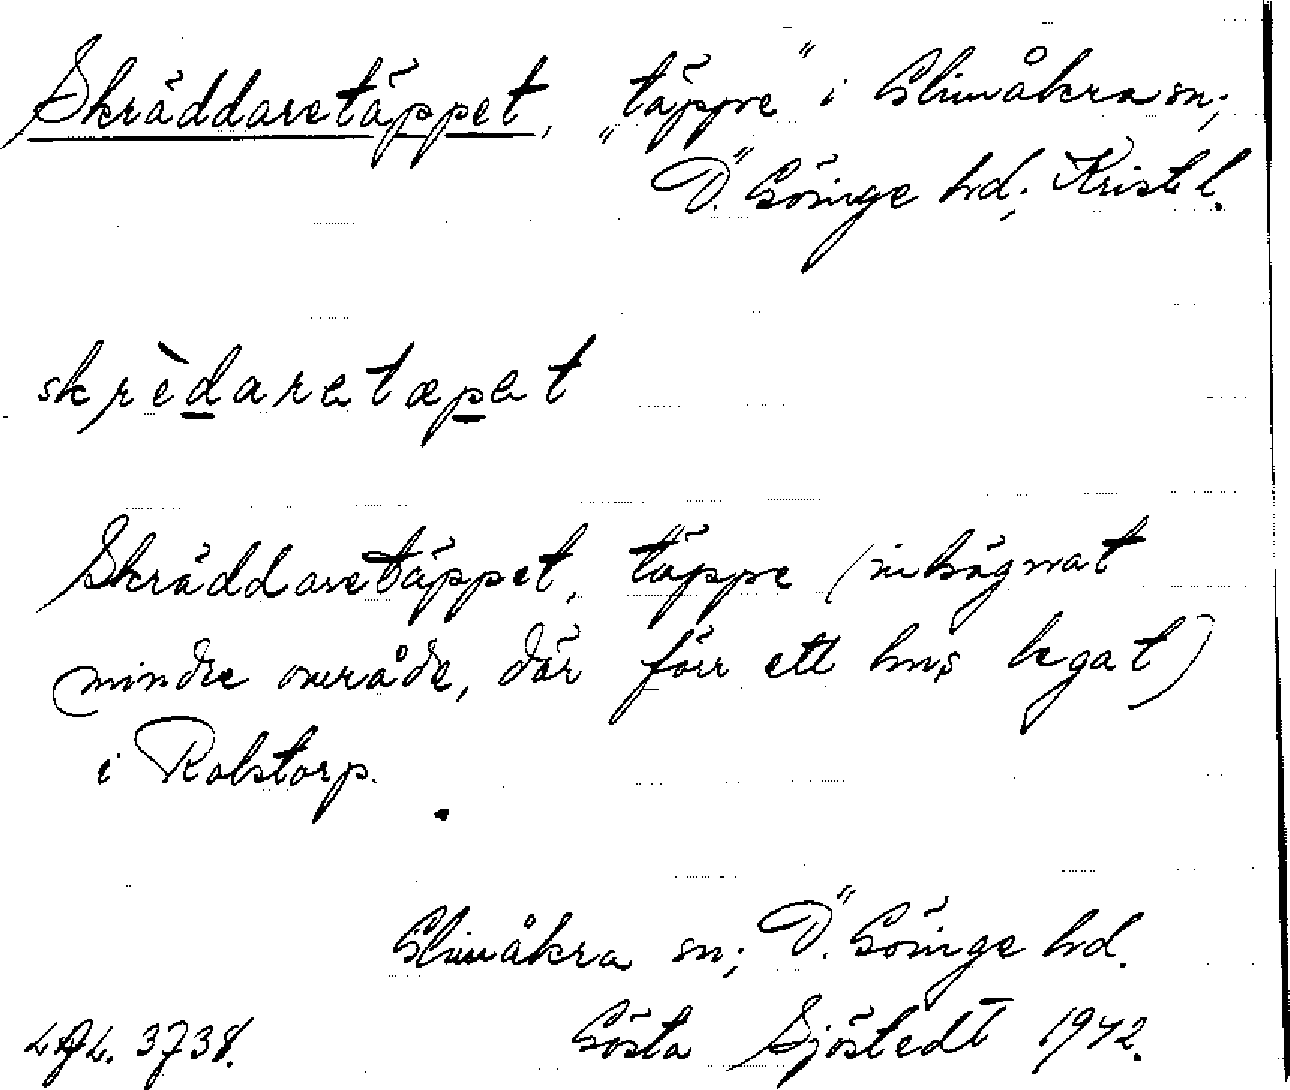 Skräddaretäppet, "täppe" i Glimåkra sn;
Ö. Göinge hd; Krist. l.
skrèdaretæpet
Skräddaretäppet, täppe (inhägnat
mindre område, där förr ett hus legat)
i Rolstorp.
Glimåkra sn; Ö. Göinge hd.
Gösta Sjöstedt 1942.